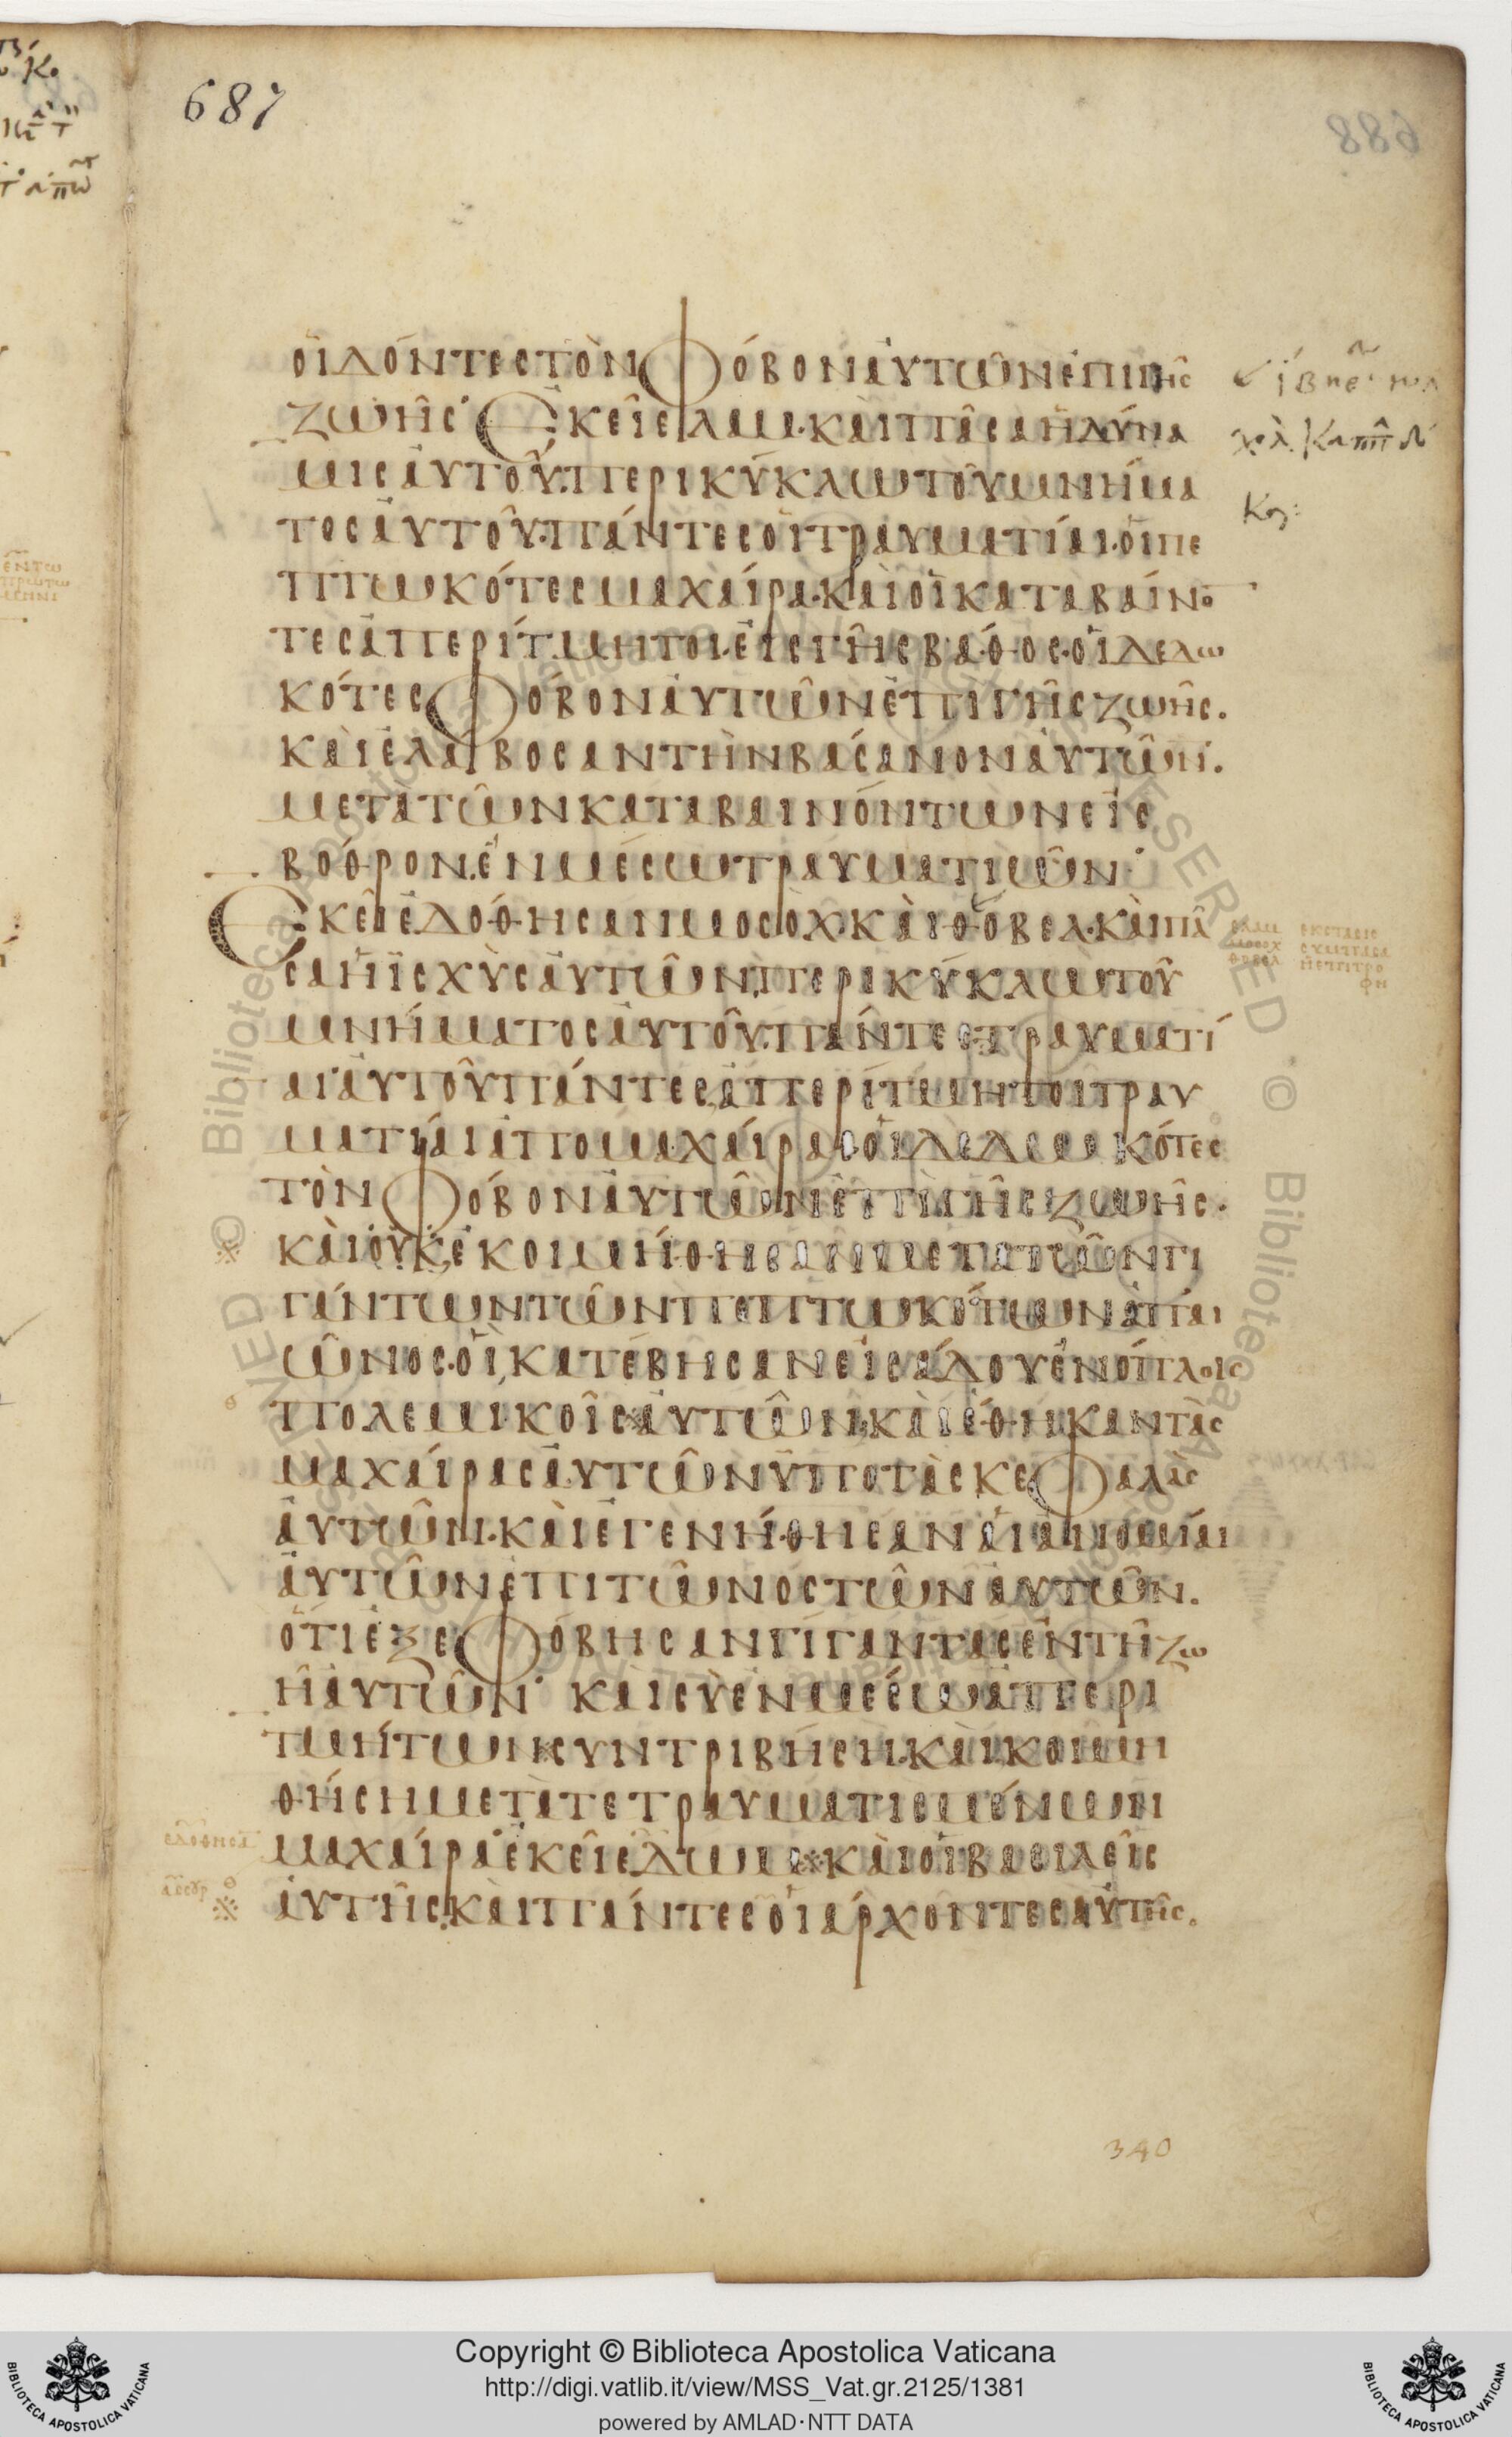 687
οἱ δόντες τὸν φόβον αὐτῶν ἐπὶ γῆς
ζωῆς· Ἐκεῖ ελαμ· καὶ πᾶσα ἡ δύνα
μις αὐτοῦ· περικύκλω τοῦ μνήμα
τος αὐτοῦ· πάντες οἱ τραυματίαι· οἱ πε
πτωκότες μαχαίρα· καὶ οἱ καταβαίνο
τες ἀπερίτμητοι· εἰς γῆς βάθος· οἱ δεδω
κότες φόβον αὐτῶν ἐπὶ γῆς ζωῆς.
καὶ ἐλάβοσαν τὴν βάσανον αὐτῶν.
μετα τῶν καταβαινόντων εἰς
βόθρον. ἐν μέσω τραυματιῶν·
Ἐκεῖ ἐδόθησαν μοσὸχ· καὶ θόβελ· καὶ πᾶ
σα ἡ ἰσχὺς αὐτῶν, περικύκλω τοῦ
μνήματος αὐτοῦ· πάντες τραυματί
αι αὐτοῦ πάντες ἀπερίτμητοι τραυ
ματίαι ἀπο μαχαίρας οἱ δεδωκότες
τὸν φόβον αὐτῶν ἐπὶ γῆς ζωῆς.
καὶ οὐκ ἐκοιμήθησαν μετα τῶν γι
γάντων τῶν πεπτωκότων ἀπ αι
ῶνος· οἳ κατέβησαν εἰς ἅδου ἐν ὅπλοις
πολεμικοῖς αὐτῶν· καὶ ἔθηκαν τὰς
μαχαίρας αὐτῶν ὑπο τὰς κεφαλὰς
αὐτῶν· καὶ ἐγενήθησαν αἱ ἀνομίαι
αὐτῶν ἐπι τῶν ὀστῶν αὐτῶν.
ὅτι ἐξεφόβησαν γίγαντας ἐν τῇ ζω
ῇ αὐτῶν· καὶ σὺ ἐν μέσω ἀπερι
τμήτων συντριβήση· καὶ κοιμη
θήση μετὰ τετραυματισμένων
μαχαίρα· ἐκεῖ εδωμ ※ καὶ οἱ βασιλεῖς
αὐτῆς, καὶ πάντες οἱ ἄρχοντες αὐτῆς.
340
Copyright © Biblioteca Apostolica Vaticana
http://digi.vatlib.it/view/MSS_Vat.gr.2125/1381
powered by AMLAD·NTT DATA